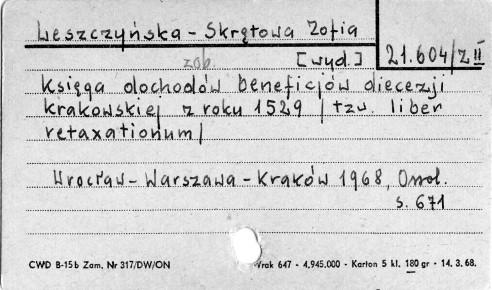 Leszczyńska - Skrętowa Zofia
zob. [wyd.] 21.604/Z II
Księga dochodów beneficjów diecezji
krakowskiej z roku 1529 /tzw. liber
retaxationum/
Wrocław - Warszawa - Kraków 1968, Ossol.
s. 671
CWD B-15b Zam. Nr 317/DW/ON rak 647 - 4,945.000 - Karton 5 kl. 180 gr - 14. 3. 68.